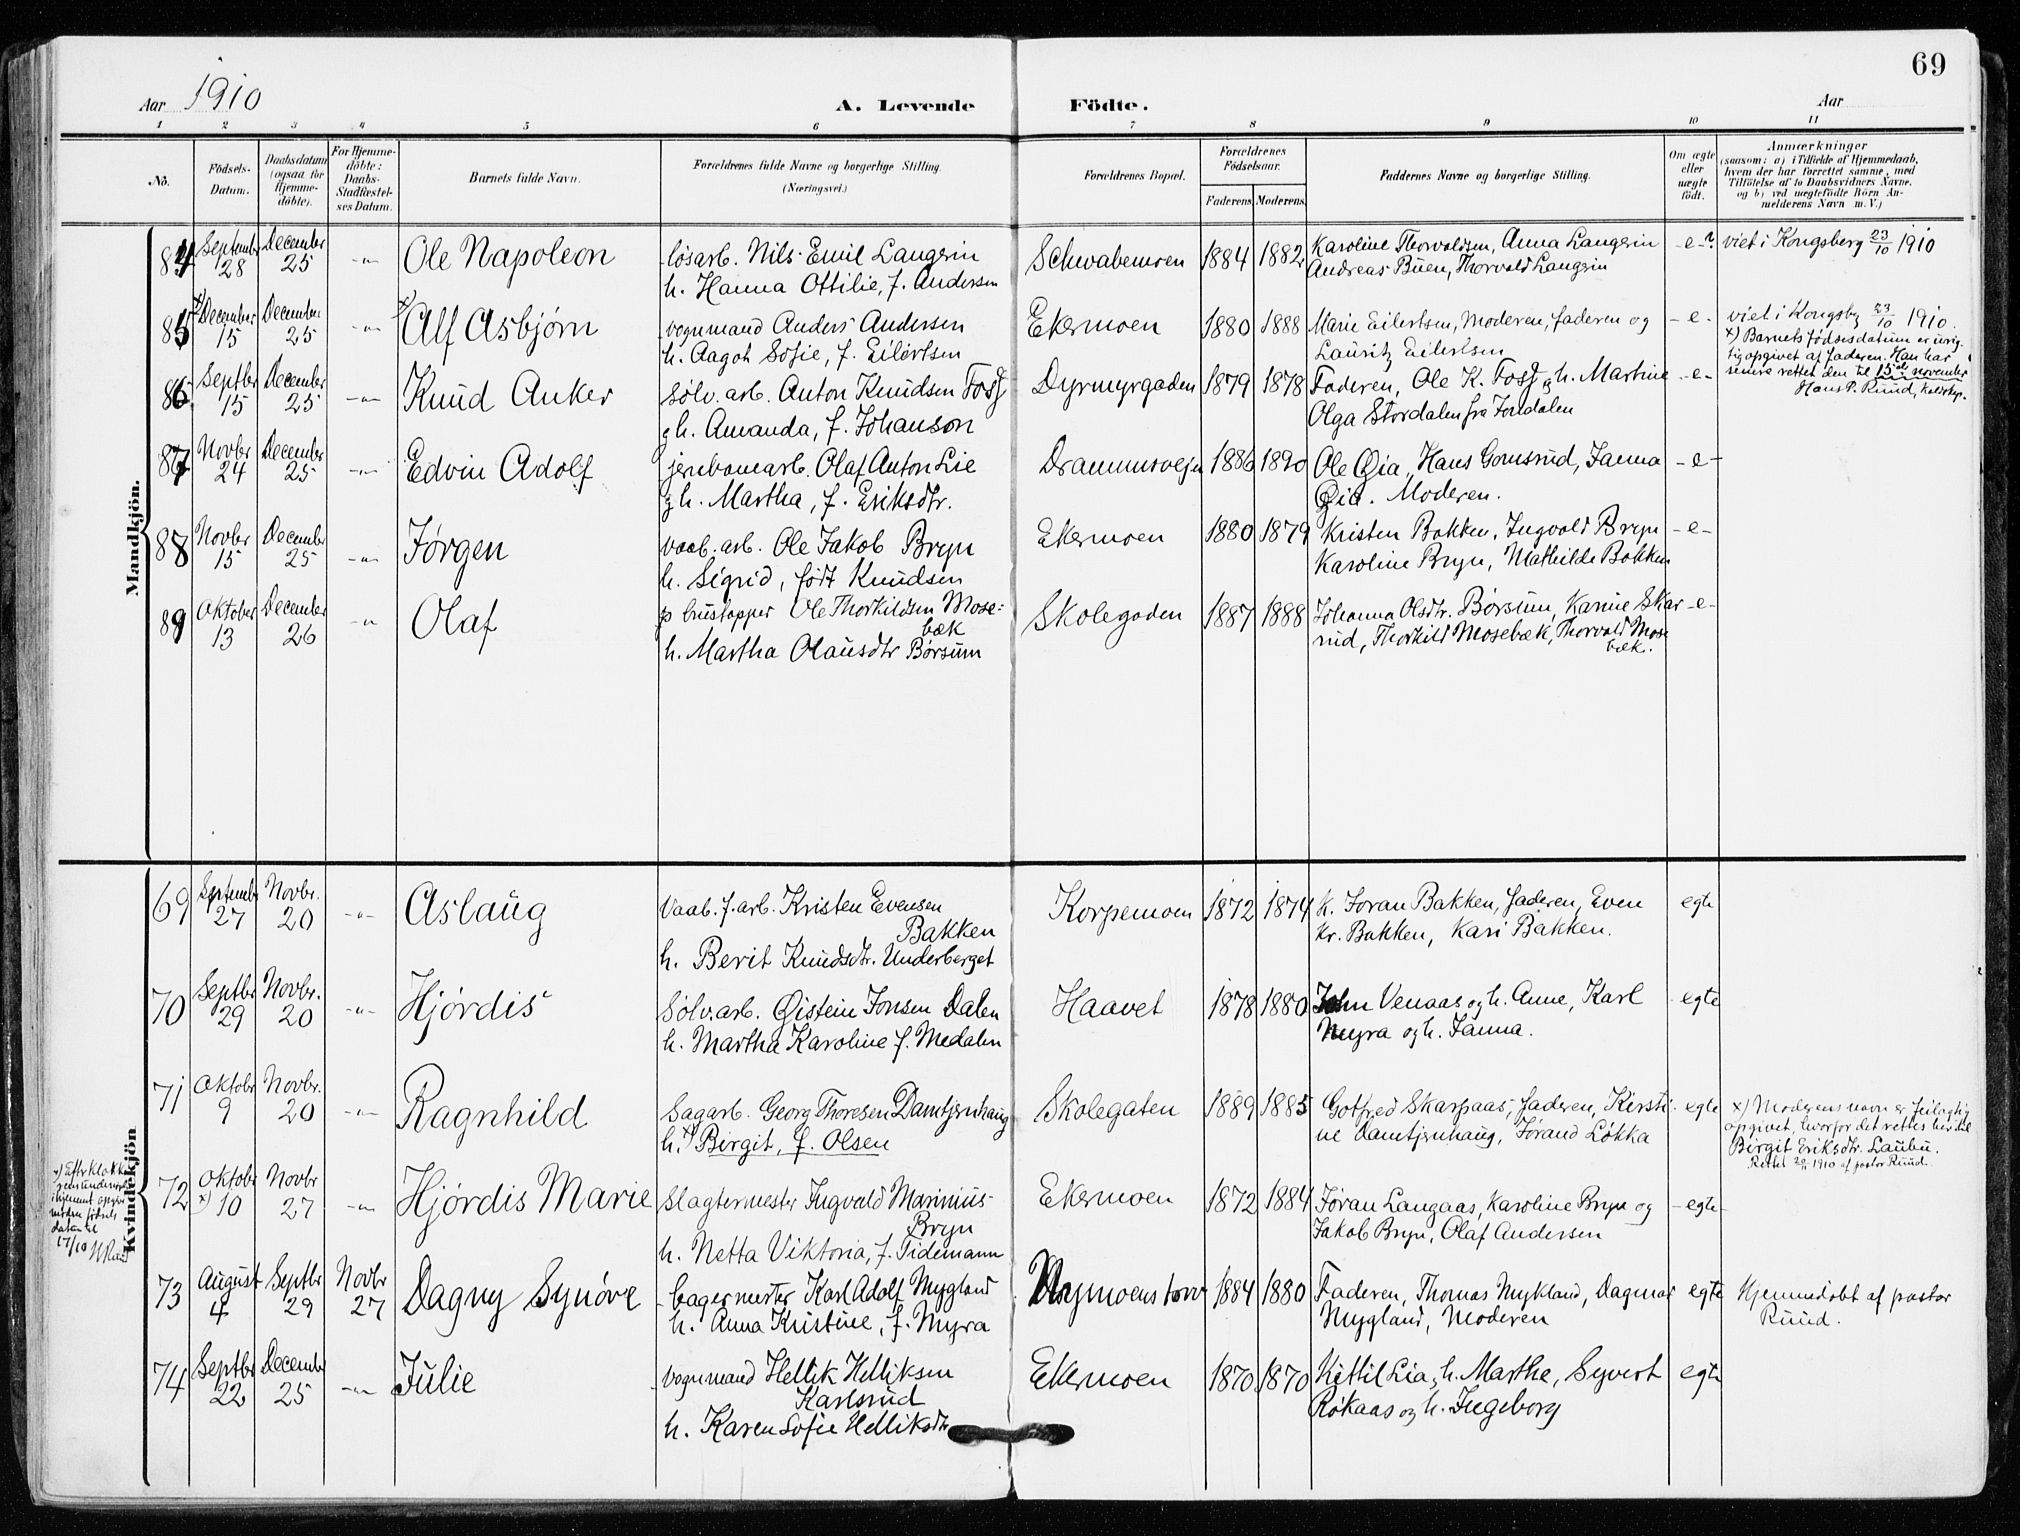 69
Aar 1910
A. Levende Födte.
Aar
1 2 3 4 5 6 7 8 9 10 11
No.
Födsels-Datum.
Daabsdatum (ogsaa for Hjemme-döbte).
For Hjemme-döbte: Daabs-Stadfæstel-ses Datum.
Barnets fulde Navn.
Forældrenes fulde Navne og borgerlige Stilling. (Næringsvei.)
Forældrenes Bopæl.
Forældrenes Födselsaar.
Faderens Moderens
Faddernes Navne og borgerlige Stilling.
Om ægte eller uægte födt.
Anmærkninger
(saasom: a) i Tilfælde af Hjemmedaab,
hvem der har forrettet samme, med
Tilföielse af to Daabsvidners Navne.
og b) ved uægtefödte Börn An-
melderens Navn m. V.)
Mandkjön.
84 September 28 December 25 -„- Ole Napoleon løsarb. Nils Emil Langerin Schwabemoen 1884 1882 Karoline Thorvaldsen, Anna Langerin -e-? viet i Kongsberg 23/10 1910
h. Hanna Ottilie, f. Andersen Andreas Buen, Thorvald Langerin
85 x) December 15 December 25 -„- x) Alf Asbjørn vognmand Anders Andersen Ekermoen 1880 1888 Marie Eilertsen, Moderen, faderen og -e- viet i Kongsbg 23/10 1910.
h. Aagot Sofie, f. Eilertsen Lauritz Eilertsen
x) Barnets fødselsdatum er urig-
tig opgivet af faderen. Han har
senere rettet den til 15de november
Hans P. Ruud,
86 Septbr 15 December 25 -„- Knud Anker sølv.arb. Anton Knudsen Foss Dyrmyrgaden 1879 1878 Faderen, Ole K. Foss og h. Martine -e-
og h. Amanda, f. Johanson Olga Stordalen fra Jondalen
87 Novbr 24 December 25 -„- Edvin Adolf jernbanearb. Olaf Anton Lie Drammensvejen 1886 1890 Ole Øia, Hans Gomsrud, Janna -e-
og h. Martha, f. Eriksdtr. Øia. Moderen.
88 Novbr 15 December 25 -„- Jørgen vaab. arb. Ole Jakob Bryn Ekermoen 1880 1879 Kristen Bakken, Ingvald Bryn -e-
h. Sigrid, født Knudsen Karoline Bryn, Mathilde Bakken
89 Oktober 13 December 26 -„ Olaf brustapper Ole Thorkildsen Mose-bæk Skolegaden 1887 1888 Johanna Olsdtr. Børsum, Karine Skar -e-
h. Martha Olausdtr Børsum rud, Thorkild Mosebæk, Thorvald Mose
bæk.
Kvindekjön
69 September 27 Novbr. 20 -„- Aslaug Vaab. f. arb. Kristen Evensen Korpemoen 1872 1874 k. Joran Bakken, faderen, Even egte
Bakken Kr. Bakken, Kari Bakken.
h. Berit Knudsdtr. Underberget
70 Septbr 29 Novbr. 20 -„- Hjørdis Sølv.arb. Øistein Jonsen Dalen Haavet 1878 1880 John Venaas og h. Anne, Karl egte
h. Martha Karoline f. Medalen Myra og h. Janna.
71 Oktobr 9 Novbr. 20 -„- Ragnhild Sagarb. Georg Thoresen Damtjernhaug Skolegaten 1889 1885 Gotfred Skarpaas, faderen, Kirsti- egte
h. x) Birgit, f. Olsen ne Damtjernhaug, Jørand Løkka
x) Moderens navn er feilagtig
opgivet, hvorfor det rettes her til
Birgit Eriksdtr. Laubu.
Rettet 20/11 1910 af pastor Ruud.
72 Oktobr x) 10 Novbr 27 -„- Hjørdis Marie Slagtermester Ingvald Marinius Ekermoen 1872 1884 Jøran Langaas, Karoline Bryn og egte
Bryn Jakob Bryn, Olaf Andersen
h. Netta Viktoria, f. Tidemann
x) Efter klokke
datum til
17/10
73 August 4 Septbr 29 Novbr 27 Dagny Synøve bagermester Karl Adolf Mygland Nymoens torv 1884 1880 Faderen, Thomas Mykland, Dagmar egte Hjemmedøbt af pastor
h. Anna Kristine, f. Myra Mygland, Moderen Ruud.
74 Septbr 22 December 25 -„- Julie vognmand Hellik Helliksen Ekermoen 1870 1870 Kittil Lia, h. Marthe, Syvert egte
Karlsrud Røkaas og h. Ingeborg
h. Karen Sofie Helliksdtr